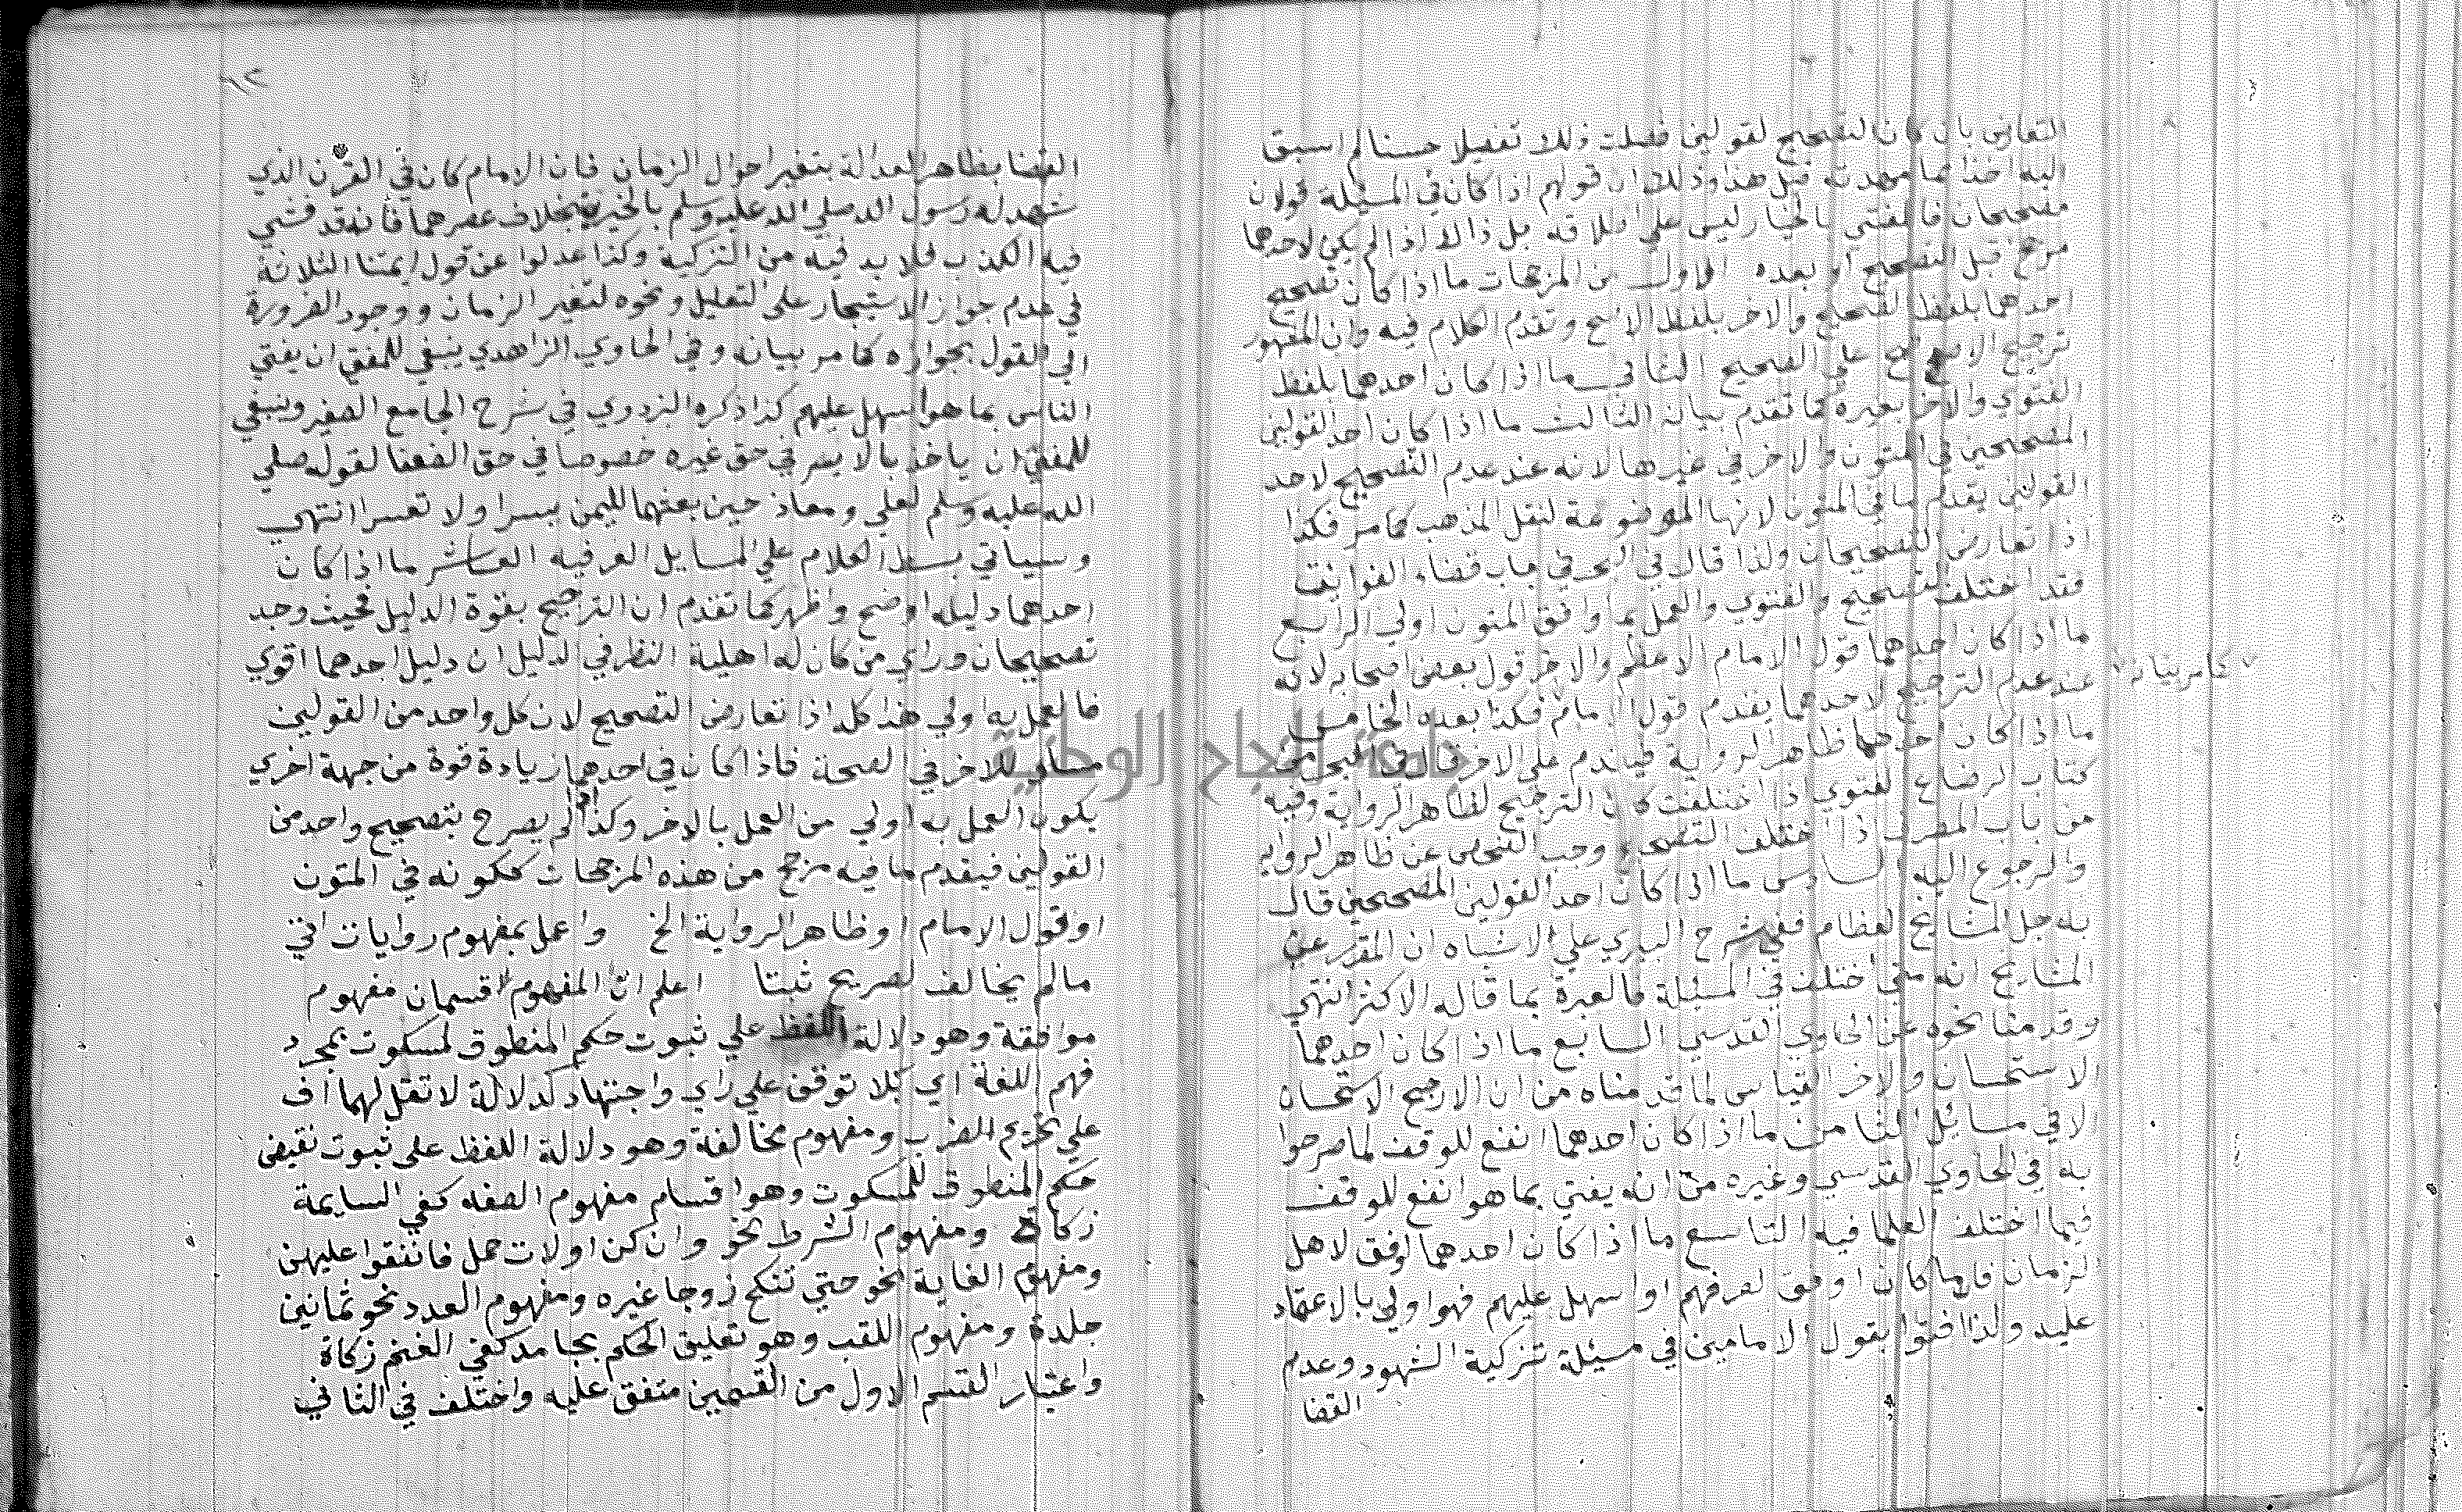 التعارض بان كان التصحيح لقولين فصلت ذلك تفصيلا حسنا لم اسبق
اليه اخذا مما مهدته قبل هذا وذلك ان قولهم اذا كان في المسئلة قولان
مصححان فالمفتي بالخيار ليس على اطلاقه بل ذاك اذا لم يكن لاحدهما
مرجح قبل التصحيح او بعده الاول من المرجحات ما اذا كان تصحيح
احدهما بلفظ الصحيح والاخر بلفظ الاصح وتقدم الكلام فيه وان المشهور
ترجيح الاصح على الصحيح الثاني ما اذا كان احدهما بلفظ
الفتوي والاخر بغيره كما تقدم بيانه الثالث ما اذا كان احد القولين
المصححين في المتون والاخر في غيرها لانه عند عدم التصحيح لاحد
القولين يقدم ما في المتون لانها الموضوعة لنقل المذهب كما مر فكذا
اذا تعارض التصحيحان ولذا قال في البحر في باب قضاء الفوايت
فقد اختلف التصحيح والفتوي والعمل بما وافق المتون اولي الرابع
ما اذا كان احدهما قول الامام الاعظم والاخر قول بعض اصحابه لانه
عند عدم الترجيح لاحدهما يقدم قول الامام فكذا بعده الخامس
كما مر بيانه
ما اذا كان احدهما ظاهر الرواية فيقدم على الاخر قال في البحر من
كتاب الرضاع الفتوي اذا اختلفت كان الترجيح لظاهر الرواية وفيه
من باب المصرف اذا اختلف التصحيح وجب الفحص عن ظاهر الرواية
والرجوع اليه السادس ما اذا كان احد القولين المصححين قال
به جل المشايخ العظام ففي شرح البيري على الاشباه ان المقرر عن
المشايخ انه متي اختلف في المسئلة فالعبرة بما قاله الاكثر انتهي
وقدمنا نحوه عن الحاوي القدسي السابع ما اذا كان احدهما
الاستحسان والاخر القياس لما قدمناه من ان الارجح الاستحسان
الا في مسائل الثامن ما اذا كان احدهما انفع للوقف لما صرحوا
به في الحاوي القدسي وغيره من انه يفتي بما هو انفع للوقف
فيما اختلف العلما فيه التاسع ما اذا كان احدهما اوفق لاهل
الزمان فان ما كان اوفق لعرفهم او اسهل عليهم فهو اولي بالاعتماد
عليه ولذا افتوا بقول الامامين في مسئلة تزكية الشهود وعدم
القضا
القضا بظاهر العدالة بتغير احوال الزمان فان الامام كان في القرن الذي
شهد له رسول الله صلي الله عليه وسلم بالخيرية بخلاف عصرهما فأنه قد فشي
فيه الكذب فلا بد فيه من التزكية وكذا عدلوا عن قول ايمتنا الثلاثة
في عدم جواز الاستيجار على التعليم ونحوه لتغير الزمان ووجود الضرورة
الي القول بجوازه كما مر بيانه وفي الحاوي الزاهدي ينبغي للمفتي ان يفتي
الناس بما هو اسهل عليهم كذا ذكره البزدوي في شرح الجامع الصغير وينبغي
للمفتي ان ياخذ بالايسر في حق غيره خصوصا في حق الضعفا لقوله صلي
الله عليه وسلم لعلي ومعاذ حين بعثهما لليمن يسرا ولا تعسرا انتهي
وسياتي بسط الكلام علي المسايل العرفيه العاشر ما اذا كان
احدهما دليله اوضح واظهر كما تقدم ان الترجيح بقوة الدليل فحيث وجد
تصحيحان وراي من كان له اهلية النظر في الدليل ان دليل احدهما اقوي
فالعمل به اولي هذا كله اذا تعارض التصحيح لان كل واحد من القولين
مساو للاخر في الصحة فاذا كان في احدهما زيادة قوة من جهة اخري
يكون العمل به اولي من العمل بالاخر وكذا اذا لم يصرح بتصحيح واحد من
القولين فيقدم ما فيه مرجح من هذه المرجحات ككونه في المتون
او قول الامام او ظاهر الرواية الخ واعمل بمفهوم روايات اتي
مالم يخالف لصريح ثبتا اعلم ان المفهوم قسمان مفهوم
موافقة وهو دلالة اللفظ علي ثبوت حكم المنطوق لمسكوت بمجرد
فهم اللغة اي بلا توقف علي راي واجتهاد كدلالة لا تقل لهما اف
علي تحريم الضرب ومفهوم مخالفة وهو دلالة اللفظ على ثبوت نقيض
حكم المنطوق للمسكوت وهو اقسام مفهوم الصفه كفي السايمة
زكاة ومفهوم الشرط نحو وان كن اولات حمل فانفقوا عليهن
ومفهوم الغاية نحو حتي تنكح زوجا غيره ومفهوم العدد نحو ثمانين
جلدة ومفهوم اللقب وهو تعليق الحكم بجامد كفي الغنم زكاة
واعتبار القسم الاول من القسمين متفق عليه واختلف في الثاني
جامعة النجاح الوطنية